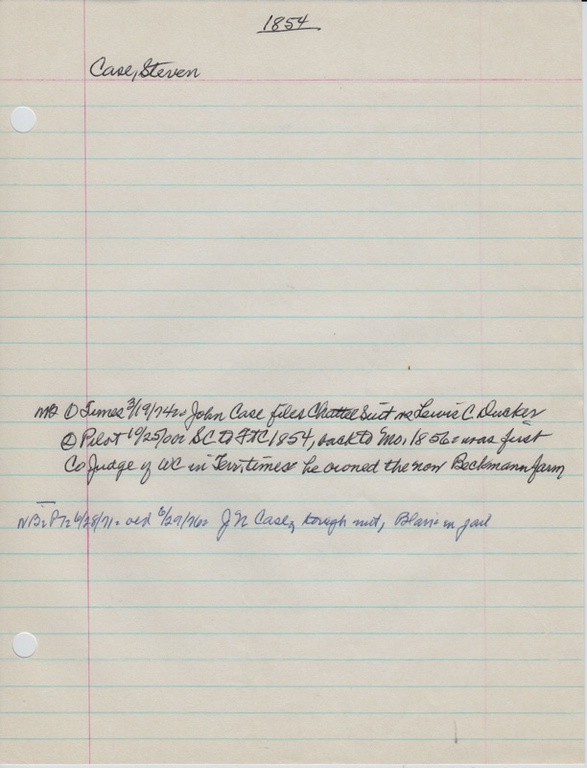 1854
Case, Steven
① Times 3/19/74 = John Case files Chattel Suit vs Lewis C. Ducker
② Pilot 10/25/00 = SC to FTC 1854, back to Mo, 1856 = was first
Co Judge of WC in Terr. times = he owned the now Beckmann farm
6/28/71 = 6/29/76 = J N Case, tough nut, Blair in jail